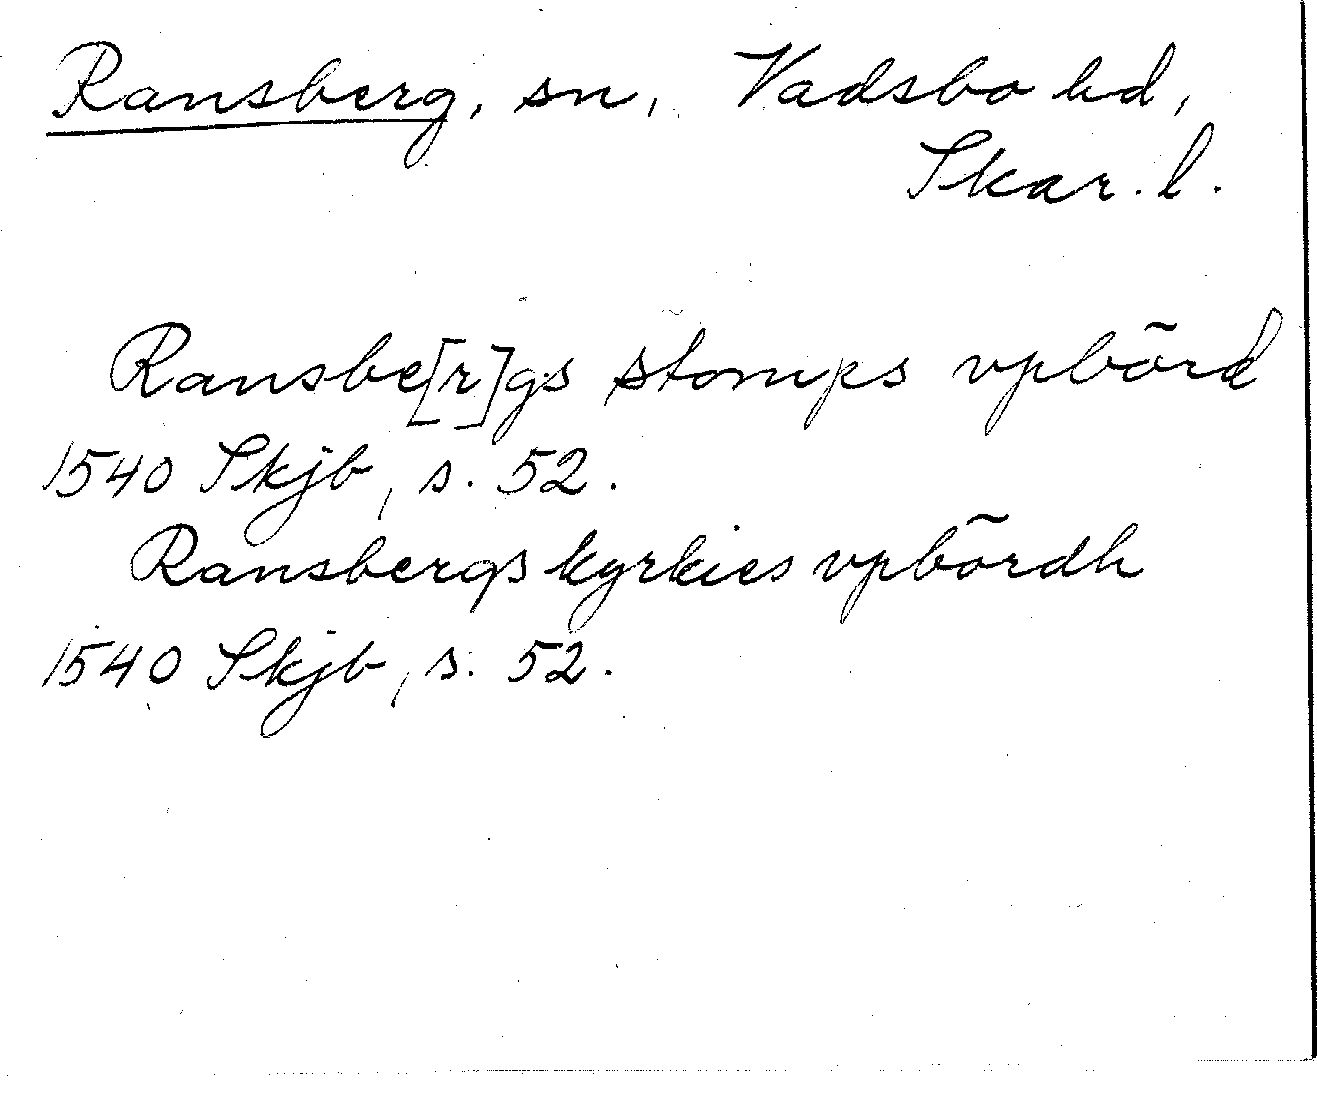 Ransberg, sn, Vadsbo hd,
Skar. l.
Ransbe[r]gs stomps vpbõrd
1540 Skjb, s. 52.
Ransbergs kyrkies vpbõrdh
1540 Skjb, s. 52.